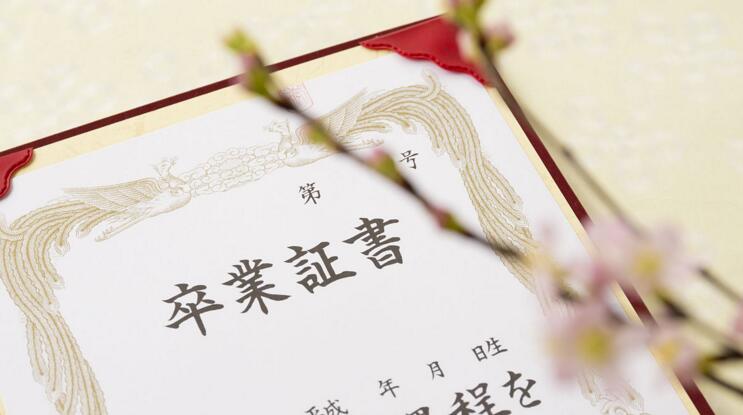 第 号
卒業証書
平成 年 月 日生
程を